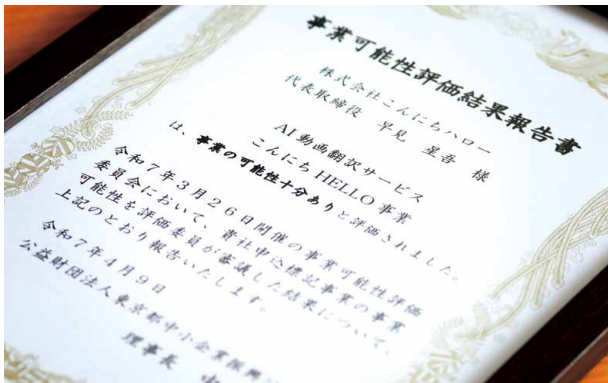 事業可能性評価結果報告書
株式会社こんにちハロー
代表取締役 早見 星吾 様
AI動画翻訳サービス
こんにちHELLO事業
は、事業の可能性十分ありと評価されました。
令和7年3月26日開催の事業可能性評価
委員会において、貴社申込標記事業の事業
可能性を評価委員が審議した結果について、
上記のとおり報告いたします。
令和7年4月9日
公益財団法人東京都中小企業振興
理事長